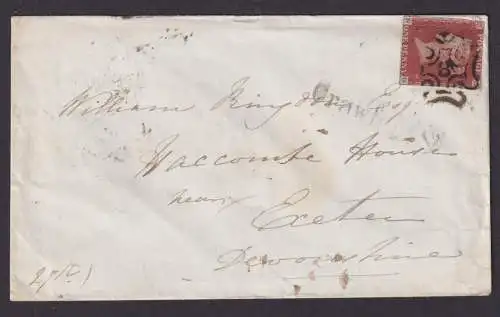 William Kingdon Esq.
Waccombe House
near
Exeter
Devonshire